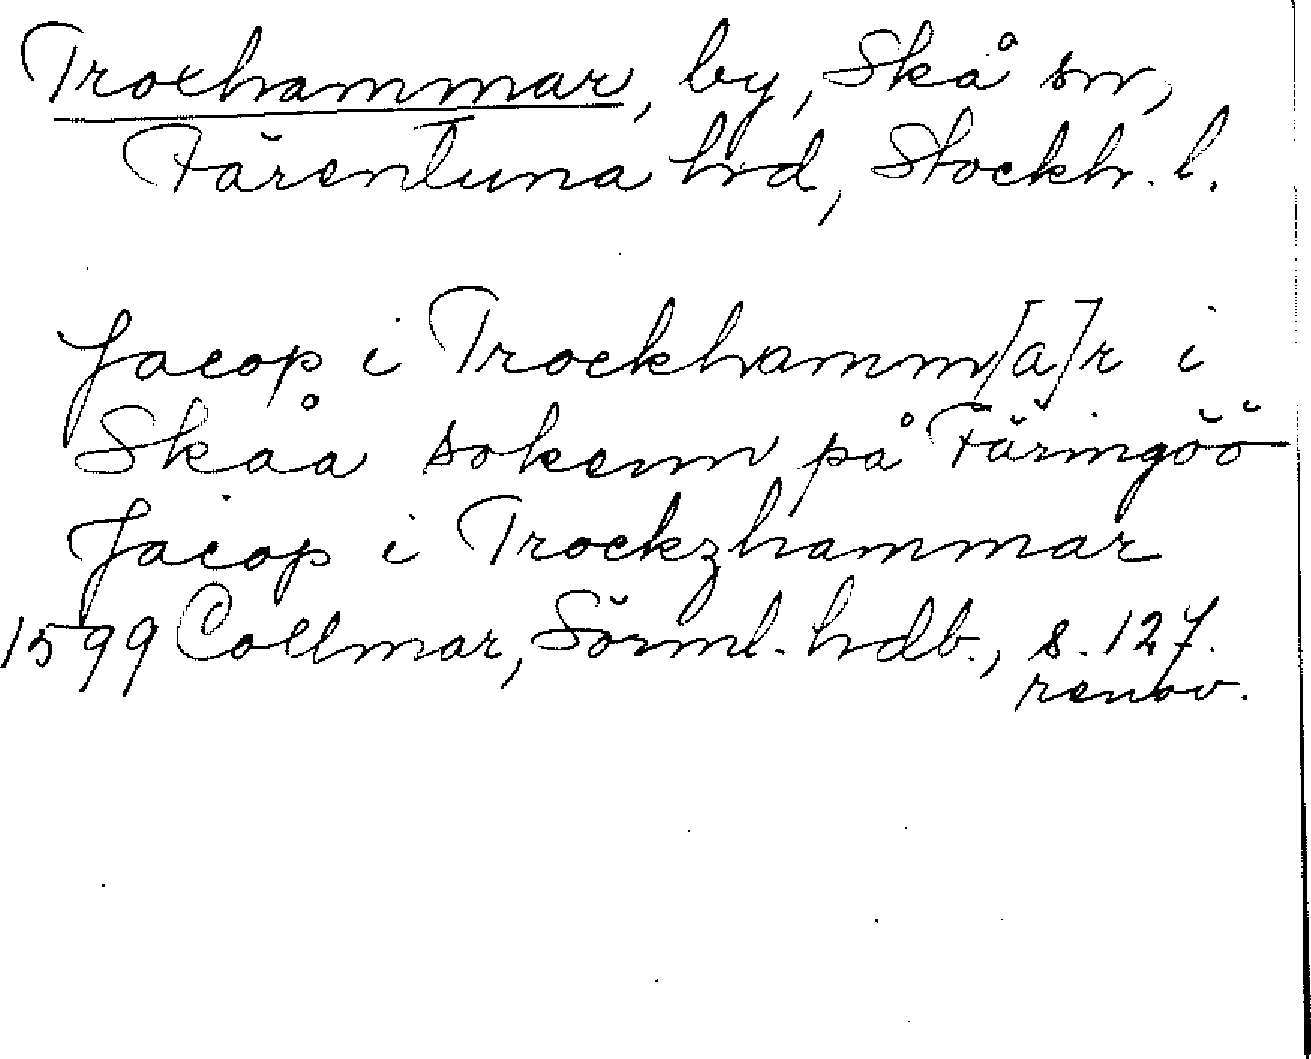 Troxhammar, by, Skå sn,
Färentuna hrd, Stockh. l.
Jacop i Trockhamm[a]r i
Skåa sokenn på Färingöö
Jacop i Trockzhammar
1599 Collmar, Sörml. hdb., s. 127.
renov.